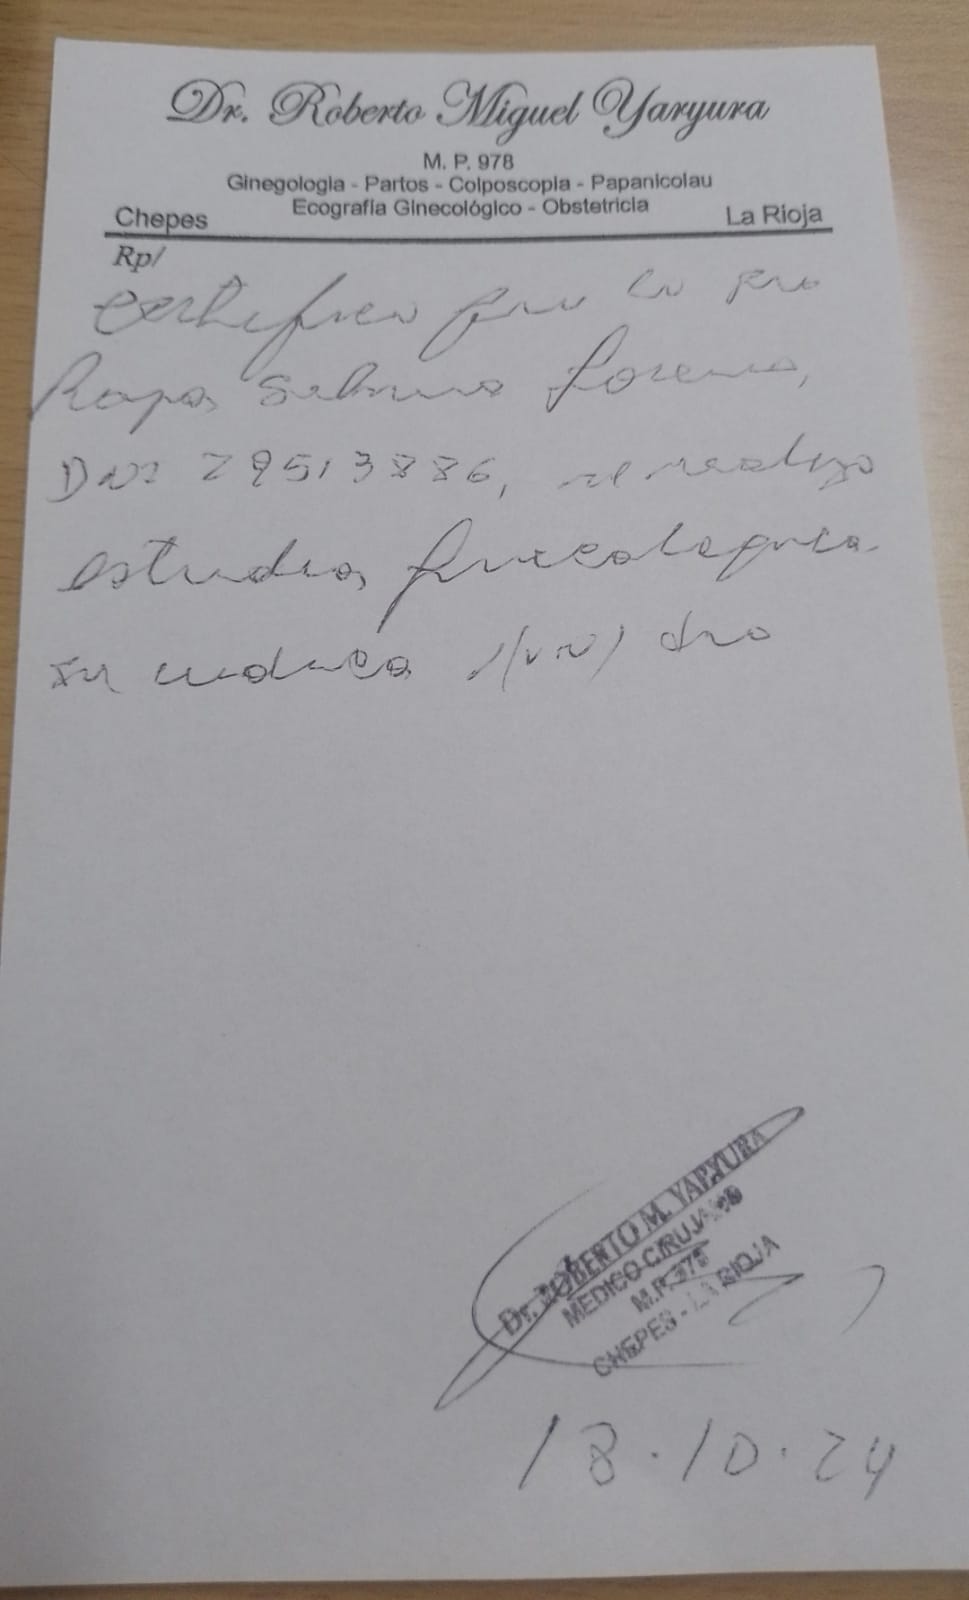 Dr. Roberto Miguel Yaryura
M. P. 978
Ginegologia - Partos - Colposcopia - Papanicolau
Ecografia Ginecológico - Obstetricia
Chepes La Rioja
Rp/
Certifico que la
Lorena,
DNI 29513886, se realizo
estudios ginecologico.
Se indica 1/(un) dia
Dr. ROBERTO M. YARYURA
MEDICO CIRUJANO
M.P. 978
CHEPES - LA RIOJA
18.10.24